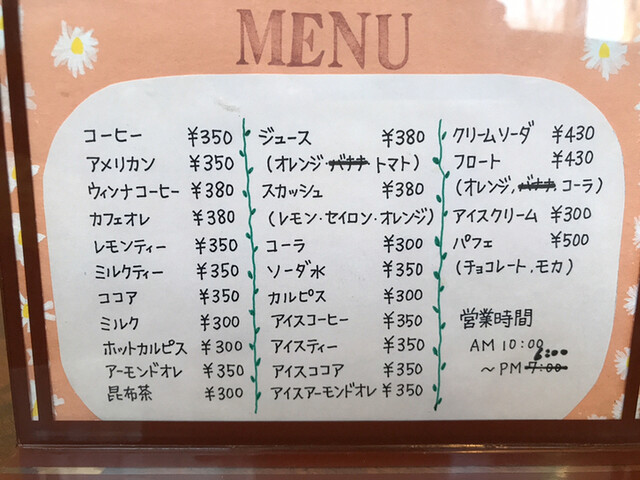 MENU
コーヒー ¥350
アメリカン ¥350
ウィンナコーヒー ¥380
カフェオレ ¥380
レモンティー ¥350
ミルクティー ¥350
ココア ¥350
ミルク ¥300
ホットカルピス ¥300
アーモンドオレ ¥350
昆布茶 ¥300
ジュース ¥380
(オレンジ・バナナ トマト)
スカッシュ ¥380
(レモン・セイロン・オレンジ)
コーラ ¥300
ソーダ水 ¥350
カルピス ¥300
アイスコーヒー ¥350
アイスティー ¥350
アイスココア ¥350
アイスアーモンドオレ ¥350
クリームソーダ ¥430
フロート ¥430
(オレンジ,バナナ コーラ)
アイスクリーム ¥300
パフェ ¥500
(チョコレート,モカ)
営業時間
AM 10:00
6:00
〜PM 7:00